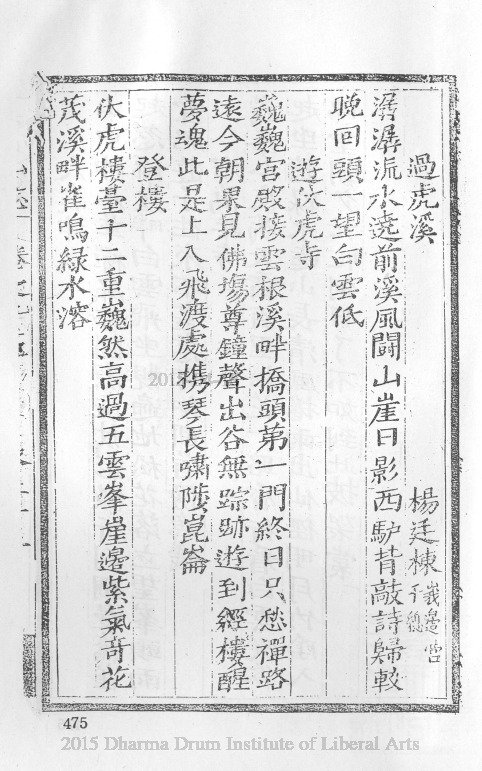 過虎溪 楊廷棟 峩邊營千總
潺潺流水遶前溪風闘山崖日影西馿背敲詩歸較
晚回頭一望白雲低
遊伏虎寺
巍巍宮殿接雲根溪畔橋頭第一門終日只愁禪路
遠今朝果見佛塲尊鐘聲出谷無踪跡遊到經樓醒
夢魂此是上人飛渡處携琴長嘯陟崑崙
登樓
伏虎樓臺十二重巍然高過五雲峯崖邊紫氣奇花
茂溪畔崔鳴綠水溶
475
2015 Dharma Drum Institute of Liberal Arts